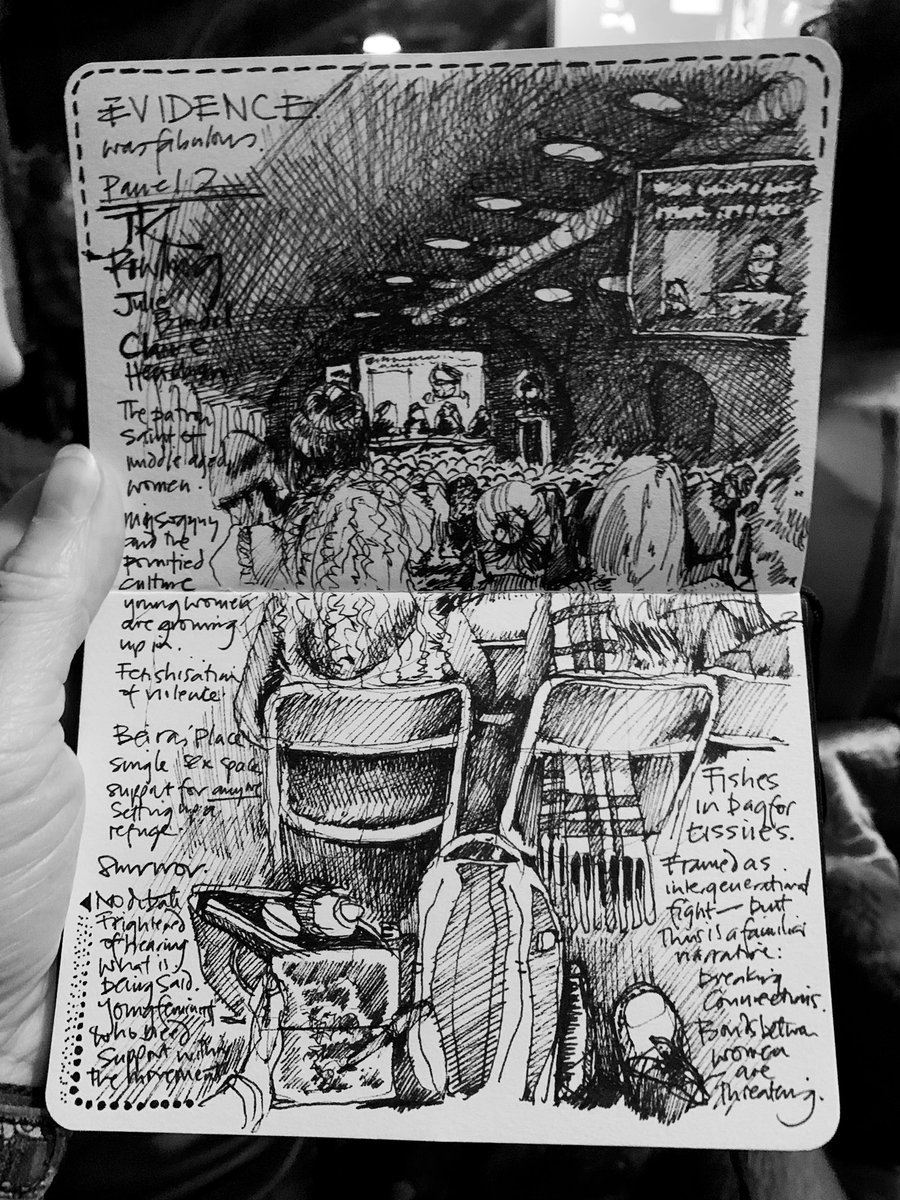 EVIDENCE.
was fabulous.
Panel 2
JK
Rowling
Julie
Bindel
Claire
Heuchan
The patron
saint of
middle aged
women.
Misogyny
and the
pornified
culture
young women
are growing
up in.
Fetishisation
of violence
Beiras Place
single sex space
support for anyone
Setting up a
refuge.
Survivor.
No debate
Frightened
of hearing
what is
being said.
Young feminists
who need
support within
the movement
Fishes
in bag for
tissues.
Framed as
intergenerational
fight — but
This is a familiar
narrative:
breaking
connections.
Bonds between
women
are
threatening.